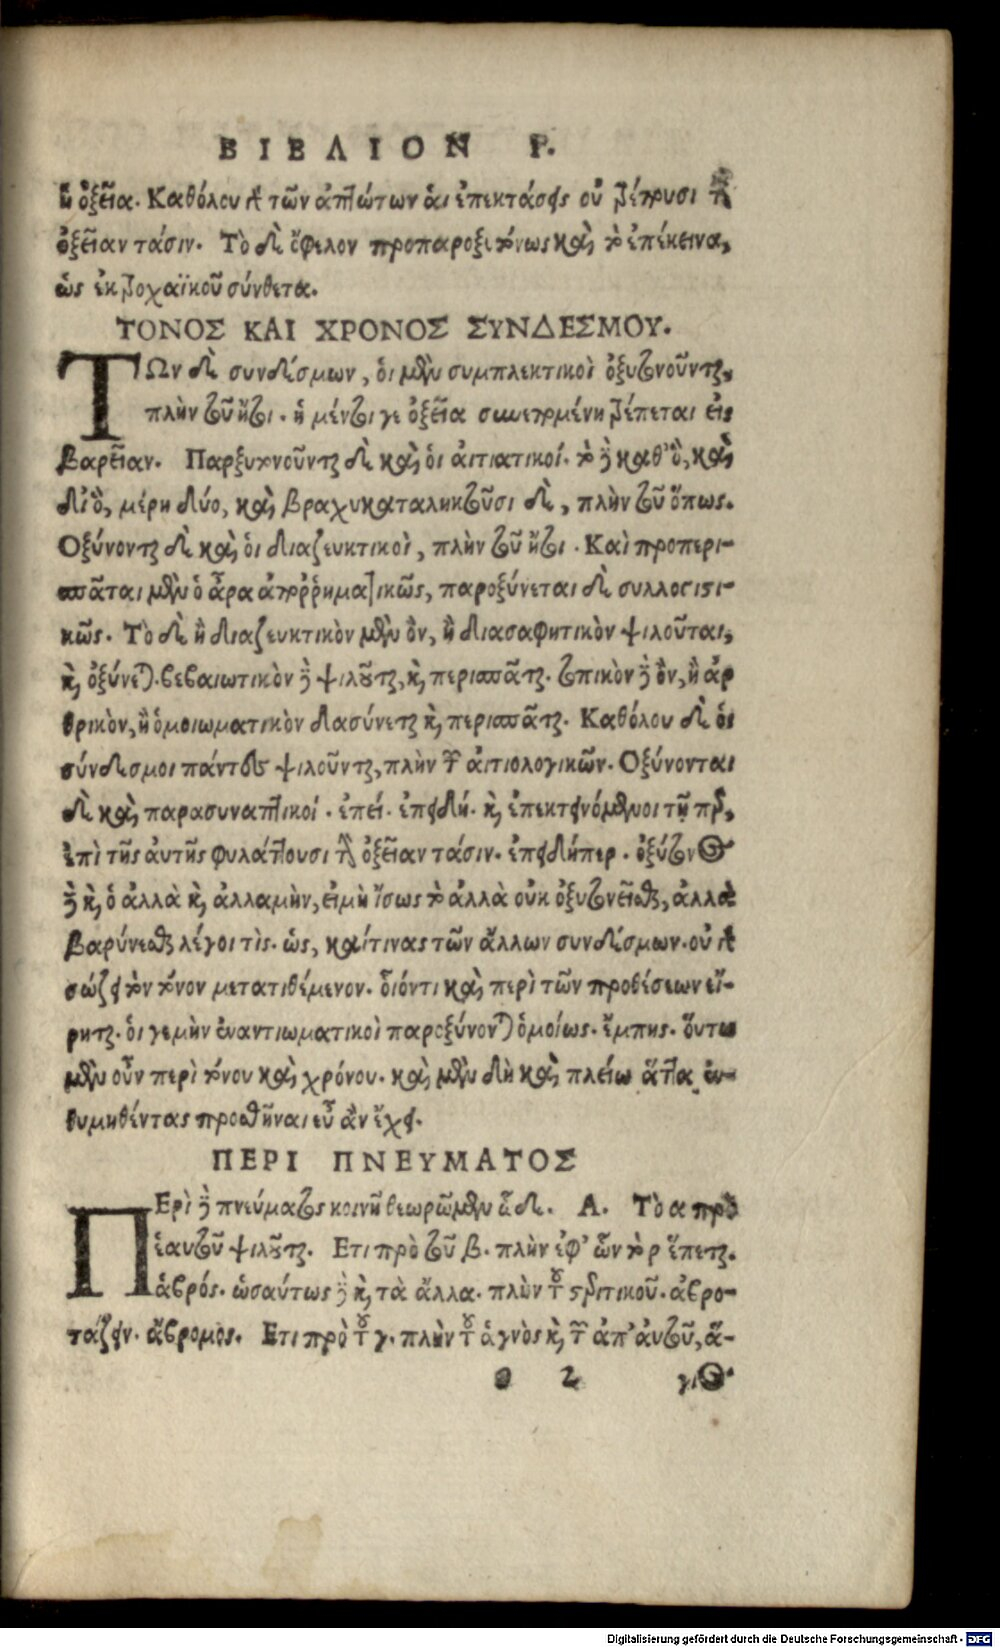 ΒΙΒΛΙΟΝ Γ.
ἡ ὀξεῖα. Καθόλου δὲ τῶν ἀπτώτων ἁι ἐπεκτάσεις οὐ τρέπουσι τὴν
ὀξεῖαν τάσιν. Τὸ δὲ ὄφελον προπαροξυτόνως καὶ τὸ ἐπέκεινα,
ὡς ἐκ τροχαϊκοῦ σύνθετα.
ΤΟΝΟΣ ΚΑΙ ΧΡΟΝΟΣ ΣΥΝΔΕΣΜΟΥ.
ΤΩν δὲ συνδέσμων, ὁι μὲν συμπλεκτικοὶ ὀξυτονοῦνται,
πλὴν τοῦ ἤτοι. ἡ μέντοι γε ὀξεῖα συνεπομένη τρέπεται εἰς
βαρεῖαν. Παροξυτονοῦνται δὲ καὶ ὁι ἀιτιατικοί. τὸ γὰρ καθ' ὃ, καὶ
δι' ὃ, μέρη δύο, καὶ βραχυκαταληκτοῦσι δὲ, πλὴν τοῦ ὅπως.
Οξύνονται δὲ καὶ ὁι διαζευκτικοὶ, πλὴν τοῦ ἤτοι. Καὶ προπερι-
σπᾶται μὲν ὁ ἆρα ἀπορρηματικῶς, παροξύνεται δὲ συλλογιστι-
κῶς. Τὸ δὲ ἢ διαζευκτικὸν μὲν ὂν, ἢ διασαφητικὸν ψιλοῦται,
καὶ ὀξύνεται. βεβαιωτικὸν γὰρ ψιλοῦται, καὶ περισπᾶται. τοπικὸν γὰρ ὂν, ἢ ἀρ
θρικὸν, ἢ ὁμοιωματικὸν δασύνεται καὶ περισπᾶται. Καθόλου δὲ ὁι
σύνδεσμοι πάντες ψιλοῦνται, πλὴν τῶν ἀιτιολογικῶν. Οξύνονται
δὲ καὶ παρασυναπτικοί. ἐπεί. ἐπειδή. καὶ ἐπεκτεινόμενοι τῇ περ,
ἐπὶ τῆς ἀυτῆς φυλάττουσι τὴν ὀξεῖαν τάσιν. ἐπειδήπερ. ὀξύτονος
γὰρ καὶ ὁ ἀλλὰ καὶ ἀλλαμὴν, εἰμὴ ἴσως τὸ ἀλλὰ οὐκ ὀξυτονεῖσθαι, ἀλλὰ
βαρύνεσθαι λέγοι τὶς. ὡς, καίτινας τῶν ἄλλων συνδέσμων. οὐ δὲ
σώζει τὸν τόνον μετατιθέμενον. διόντι καὶ περὶ τῶν προθέσεων εἴ-
ρηται. ὁι γεμὴν ἐναντιωματικοὶ παροξύνονται ὁμοίως. ἔμπης. ὅυτω
μὲν οὖν περὶ τόνου καὶ χρόνου. καὶ μὲν δὴ καὶ πλείω ἅττα ἐν-
θυμηθέντας προσθῆναι εὖ ἂν ἔχει.
ΠΕΡΙ ΠΝΕΥΜΑΤΟΣ
ΠΕρὶ γὰρ πνεύματος κοινῇ θεωρῶμεν ὧδε. Α. Τὸ α πρὸ
ἑαυτοῦ ψιλοῦται. Ετι πρὸ τοῦ β. πλὴν ἐφ' ὧν τὸ ρ ἕπεται.
ἁβρός. ὡσαύτως γὰρ καὶ τὰ ἄλλα. πλὴν τοῦ στερητικοῦ. ἀβρο-
τάζειν. ἄβρομος. Ετι πρὸ τοῦ γ. πλὴν τοῦ ἁγνὸς καὶ τῶν ἀπ' ἀυτοῦ, ἅ-
ο 2 γιος